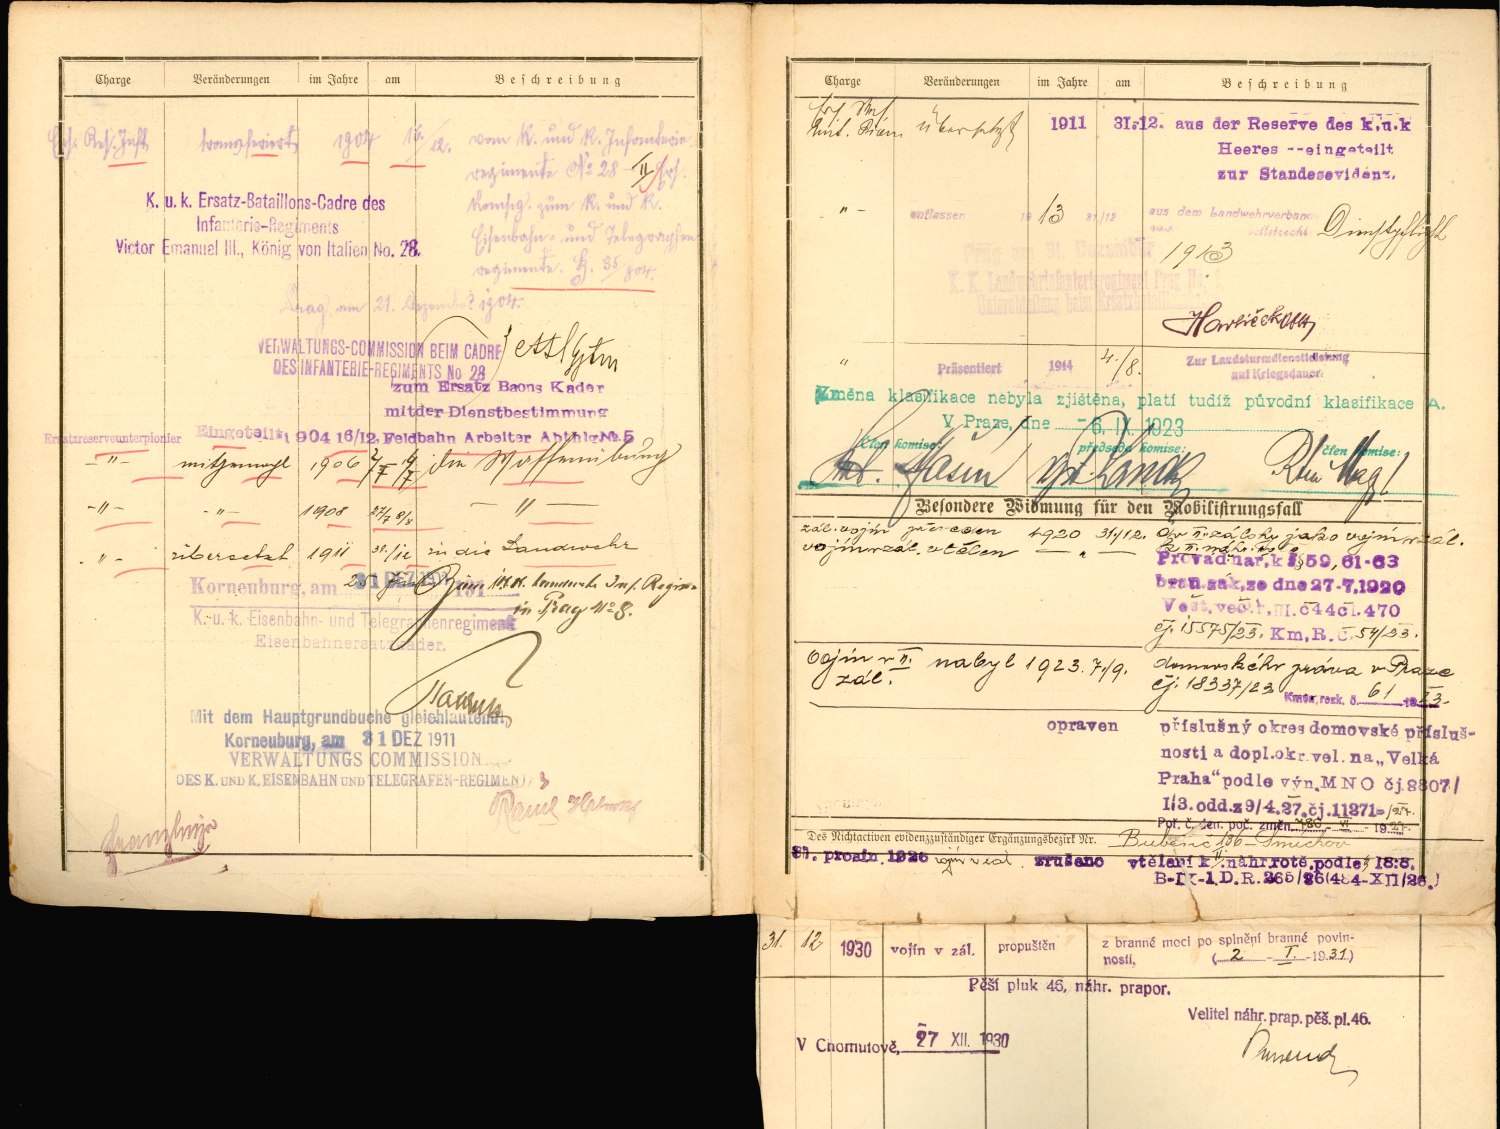 Charge Veränderungen im Jahre am Beschreibung
Ers. Res. Inftr transferiert 1904 16/12. vom K. und K. Infanterie
regimente No 28 - II/Ers.
Kompg. zum K. und K.
Eisenbahn- und Telegraphen
regimente. 35/904.
K. u. k. Ersatz-Bataillons-Cadre des
Infanterie-Regiments
Victor Emanuel III., König von Italien No. 28.
Prag, am 21. Dezember 1904.
VERWALTUNGS-COMMISSION BEIM CADRE
DES INFANTERIE-REGIMENTS No 28
zum Ersatz Baons Kader
mit der Dienstbestimmung
Ersatzreserveunterpionier Eingeteilt 1904 16/12. Feldbahn Arbeiter Abthlg No 5
-"- mitgemacht 1906 die Waffenübung
-"- -"- 1908 27/7 8/8 - " -
" - übersetzt 1911 31./12 in die Landwehr
Korneuburg, am 31 DEZ 1911 zum k.k. Landwehr Inf. Regim.
in Prag No 8.
K. u. k. Eisenbahn- und Telegrafenregiment
Eisenbahnersatzkader.
Mit dem Hauptgrundbuche gleichlautend.
Korneuburg, am 31 DEZ 1911
VERWALTUNGS COMMISSION
DES K. UND K. EISENBAHN UND TELEGRAFEN-REGIMENTS
Charge Veränderungen im Jahre am Beschreibung
übersetzt 1911 31.12. aus der Reserve des k.u.k
Heeres --eingeteilt
zur Standesevidenz.
" - entlassen 1913 31/12 aus dem Landwehrverbande
Dienstpflicht
Prag am 31. Dezember 1913
K. K. Landwehrinfanterieregiment Prag Nr. 8
Havlíček Obst
" Präsentiert 1914 4./8. Zur Landsturmdienstleistung
auf Kriegsdauer.
Změna klasifikace nebyla zjištěna, platí tudíž původní klasifikace A.
V Praze, dne -6. IX. 1923
Člen komise: předseda komise: člen komise:
Besondere Widmung für den Mobilisirungsfall
zál. vojín převeden 1920 31/12. do II. zálohy jako vojín v zál.
vojín v zál. vtělen — " — k II. náhr.
Provád. nař. k § 59, 61-63
bran. zák. ze dne 27-7.1920
Věst. věc. r. III. č 44 čl. 470
čj. 15575/23. Km. R. č. 54/23.
vojín v II. nabyl 1923. 7./9. domovského práva v Praze
zál. čj. 18337/23
Kmen. rozk. č. 61 1923.
opraven příslušný okres domovské přísluš-
nosti a dopl. okr. vel. na „Velká
Praha“ podle výn. MNO čj. 2807/
I/3. odd. z 9/4.27. čj. 11271-/27.
Poř. č. den. poč. změn 1927.
Des Nichtactiven evidenzzuständiger Ergänzungsbezirk Nr. Bubenč 186 - Smíchov
31. prosin. 1926 vojín v zál. zrušeno vtělení k II. náhr. rotě, podle § 18:8.
B-IX-1. D. R. 265/26 (484-XII/26.)
31. 12 1930 vojín v zál. propuštěn z branné moci po splnění branné povin-
nosti. (2 - I. - 1931.)
Pěší pluk 46, náhr. prapor.
Velitel náhr. prap. pěš. pl. 46.
V Chomutově, 27 XII. 1930